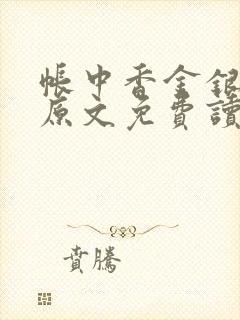 帳中香金銀
原文免費讀
賁騰